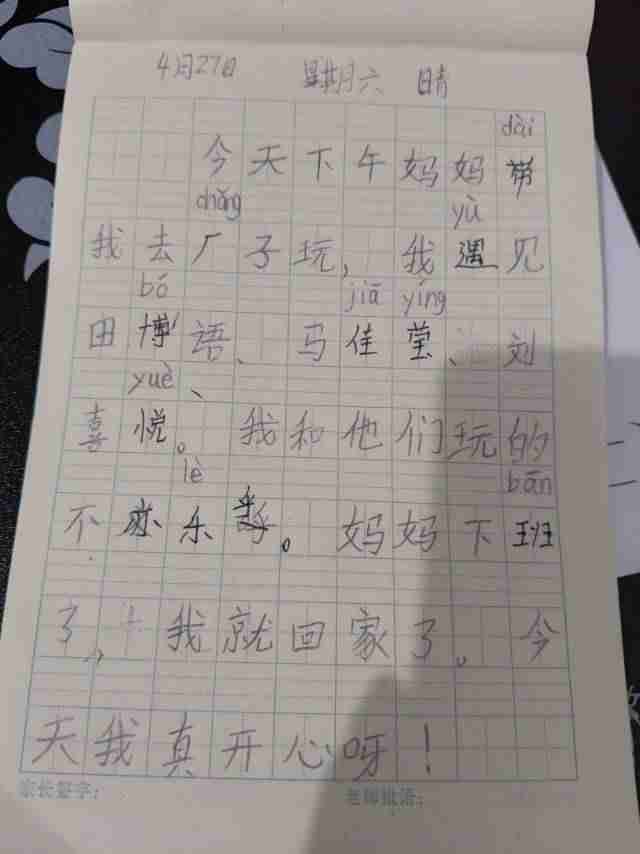 4月27日 星期六 晴
dài
今天下午妈妈带
chǎng yù
我去厂子玩，我遇见
bó jiā yíng
田博语、马佳莹、刘
yuè
喜悦。我和他们玩的
lè bān
不亦乐乎。妈妈下班
了，我就回家了。今
天我真开心呀！
家长签字： 老师批语：